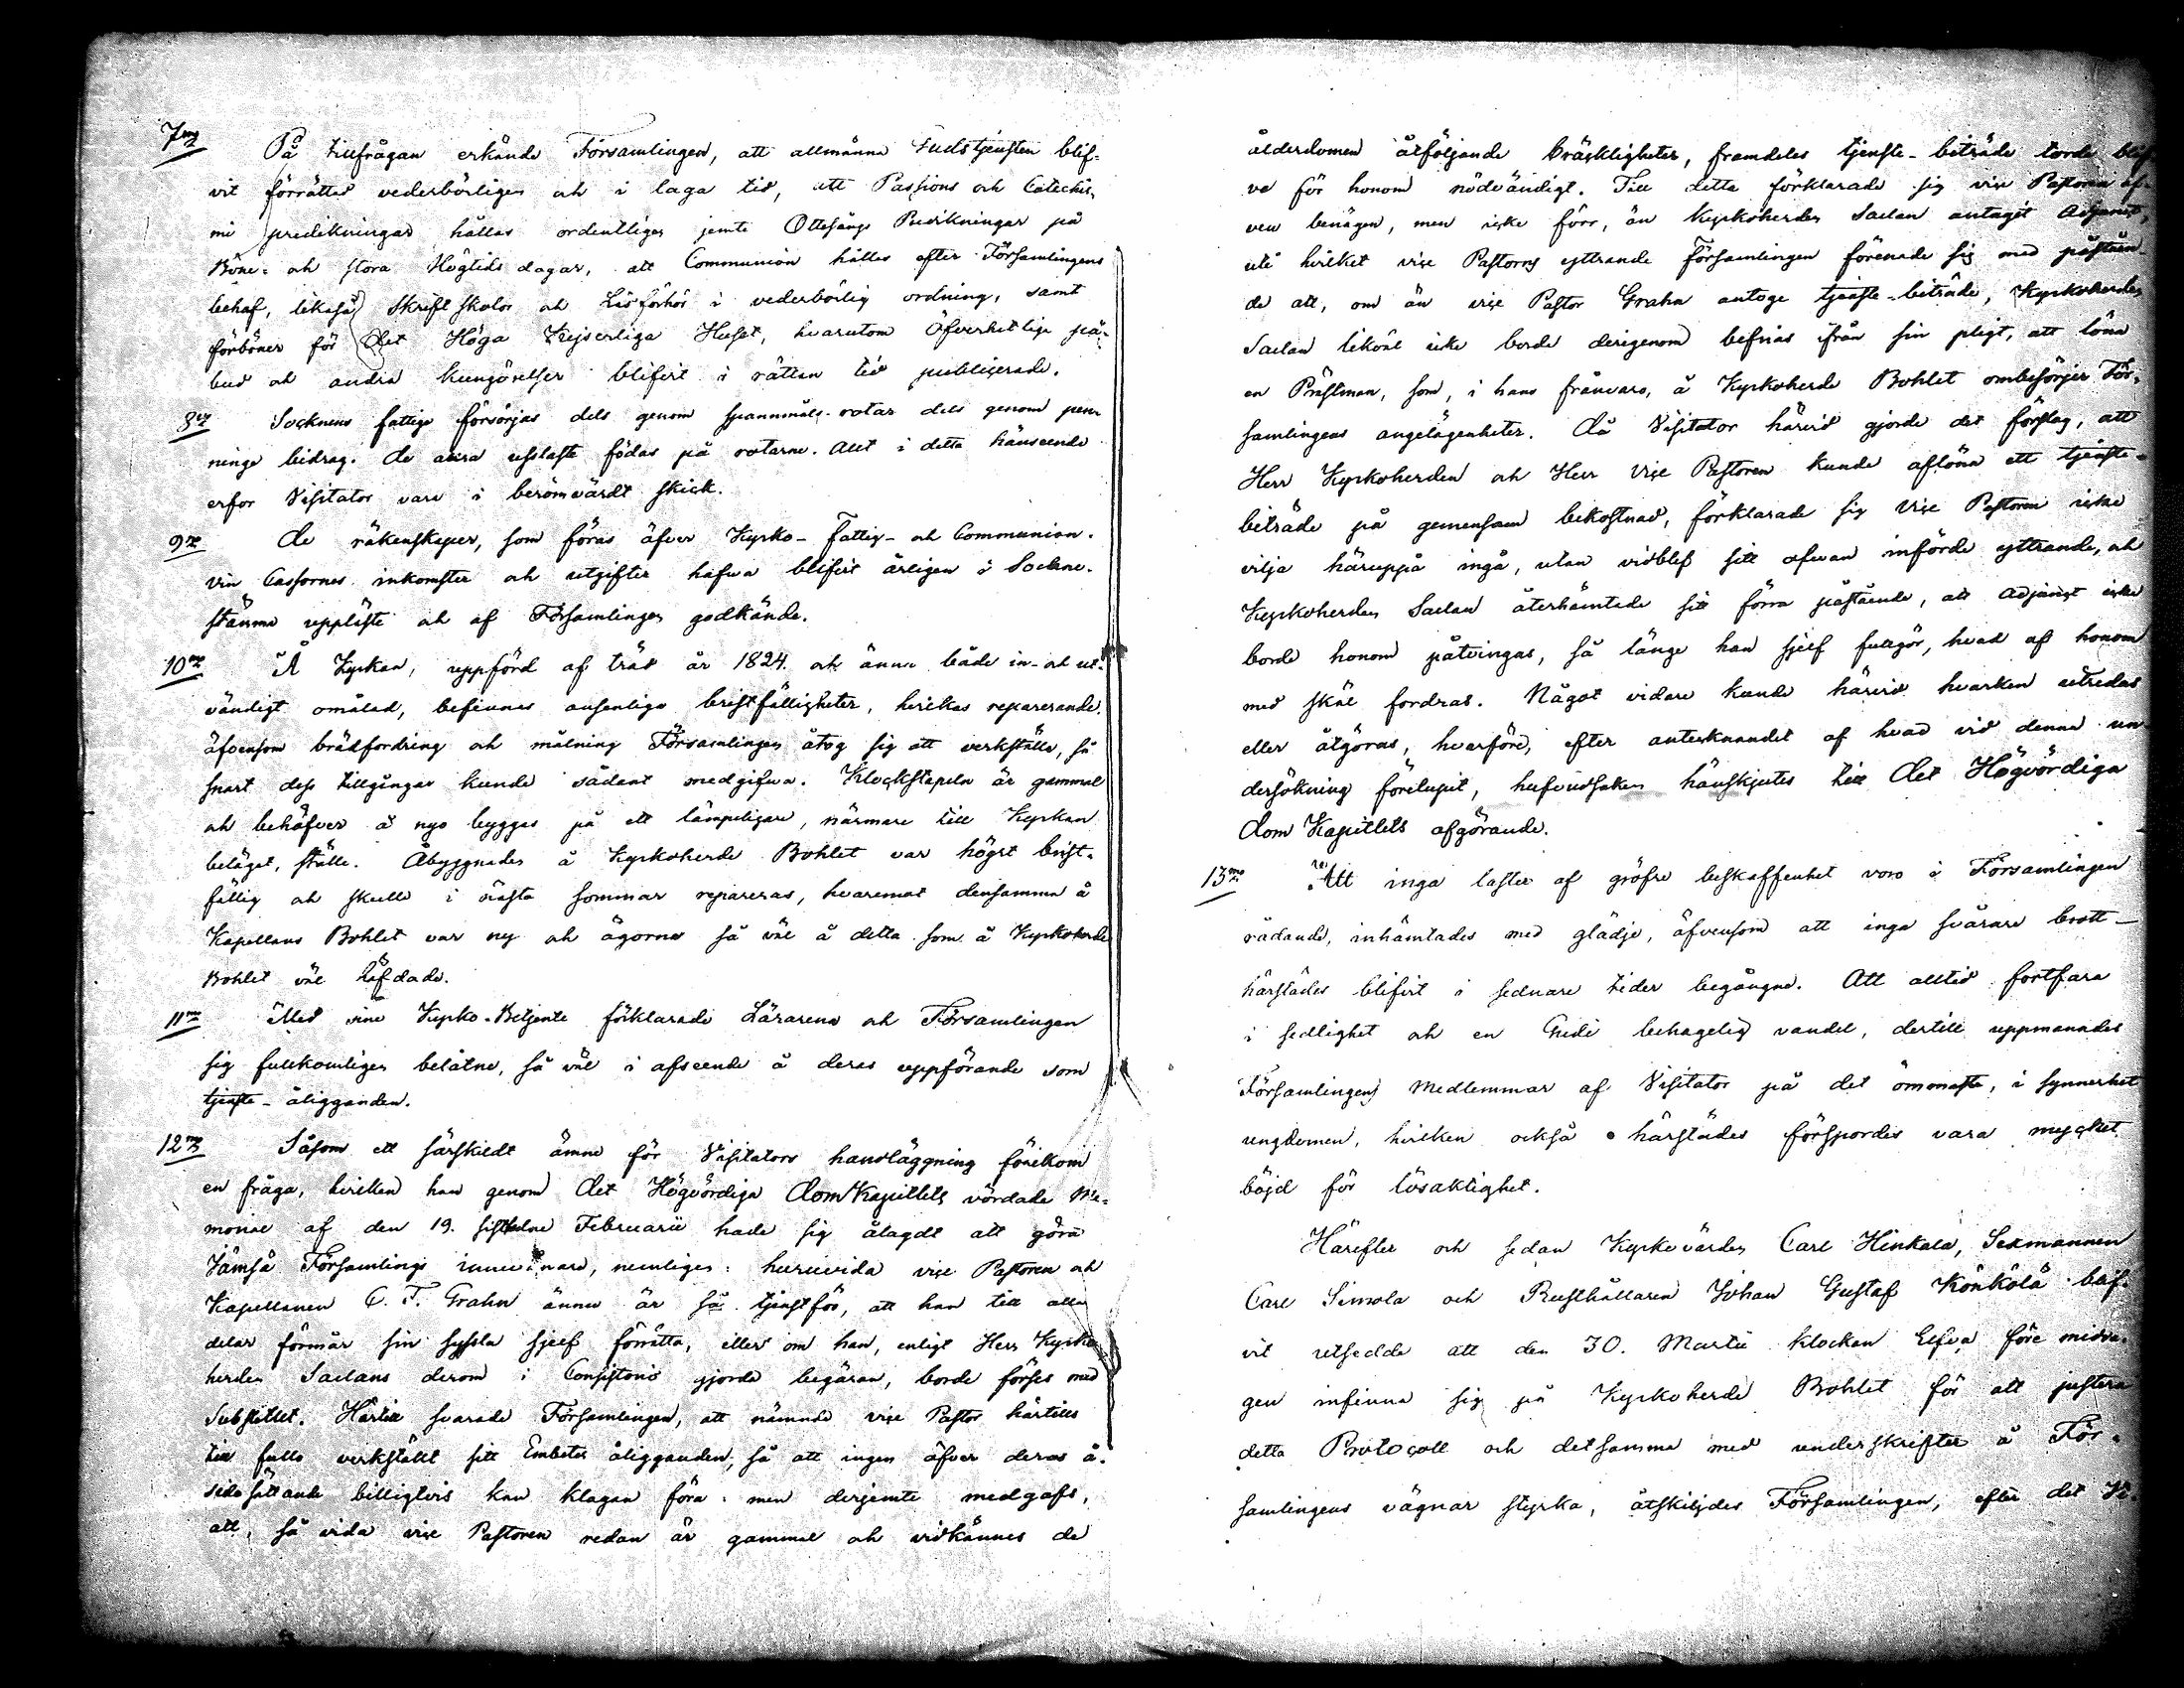 7mo På tillfrågan erkände Församlingen, att allmänna Gudstjensten blif-
vit förrättad vederbörligen och i laga tid, att Passions och Catechis-
mi predikningar hållas ordentligen jemte Ottesångs Predikningar på
Böne- och stora Högtids dagar, att Communion hålles efter Församlingens
behof, likaså Skriftskolor och Läsförhör i vederbörlig ordning, samt
förböner för Det Höga Kejserliga Huset, hvarutom Öfverhetliga på-
bud och andra kungörelser blifvit i rättan tid publicerade.
8vo Socknens fattige försörjas dels genom spannmåls-rotar dels genom pen-
ninge bidrag. De allra uslaste födas på rotarne. Allt i detta hänseende
erfor Visitator vara i berömvärdt skick.
9no De räkenskaper, som föras öfver Kyrko- Fattig- och Communion-
vin Cassornes inkomster och utgifter hafva blifvit årligen å Sockne-
stämma uppläste och af Församlingen godkände.
10mo Å Kyrkan, uppförd af träd år 1824. och ännu både in- och ut-
vändigt omålad, befinnas ansenliga bristfälligheter, hvilkas reparerande,
äfvensom brädfordring och målning Församlingen åtog sig att verkställa, så
snart dess tillgångar kunde sådant medgifva. Klockstapeln är gammal
och behöfver å nyo byggas på ett lämpeligare, närmare till Kyrkan
beläget, ställe. Åbyggnaden å Kyrkoherde Bohlet var högst brist-
fällig och skulle i nästa sommar repareras, hvaremot densamma å
Kapellans Bohlet var ny och ägorna så väl å detta som å Kyrkoherde
Bohlet väl häfdade.
11mo Med sine Kyrko-Betjente förklarade Lärarena och Församlingen
sig fullkomligen belåtne, så väl i afseende å deras uppförande som
tjenste-åligganden.
12mo Såsom ett särskildt ämne för Visitators handläggning förekom
en fråga, hvilken han genom Det Högvördiga DomKapitlets vördade Me-
morial af den 19. sistledne Februarii hade sig ålagdt att göra
Jämsä Församlings innevånare, nemligen: huruvida vice Pastoren och
Kapellanen C. F. Grahn ännu är så tjenstför, att han till alla
delar förmår sin syssla sjelf förrätta, eller om han, enligt Herr Kyrko-
herden Saelans derom i Consistorio gjorda begäran, borde förses med
Substitut. Härtill svarade Församlingen, att nämnde vice Pastor härtills
till fullo verkställt sitt Embetes åligganden, så att ingen öfver deras å-
sidosättande billigtvis kan klagan föra: men derjemte medgafs,
att, så vida vice Pastoren redan är gammal och vidkännes de
ålderdomen åtföljande bräckligheter, framdeles tjenste-biträde torde blif-
va för honom nödvändigt. Till detta förklarade sig vice Pastoren äf-
ven benägen, men icke förr, än Kyrkoherden Saelan antagit Adjunct,
uti hvilket vice Pastorns yttrande Församlingen förenade sig med påståen-
de att, om än vice Pastor Grahn antoge tjenste-biträde, Kyrkoherden
Saelan likväl icke borde derigenom befrias ifrån sin pligt, att löna
en Prästman, som, i hans frånvaro, å Kyrkoherde Bohlet ombesörjer För-
samlingens angelägenheter. Då Visitator härvid gjorde det förslag, att
Herr Kyrkoherden och Herr Vice Pastoren kunde aflöna ett tjenste-
biträde på gemensam bekostnad, förklarade sig Vice Pastoren icke
vilja häruppå ingå, utan vidblef sitt ofvan införde yttrande, och
Kyrkoherden Saelan återhämtade sitt förra påstående, att Adjunct icke
borde honom påtvingas, så länge han sjelf fullgör, hvad af honom
med skäl fordras. Något vidare kunde härvid hvarken utredas
eller åtgöras, hvarföre, efter antecknandet af hvad vid denna un
dersökning förelupit, hufvudsaken hänskjutes till Det Högvördiga
Dom Kapitlets afgörande.
13mo Att inga laster af gröfre beskaffenhet voro i Församlingen
rådande, inhämtades med glädje, äfvensom att inga svårare brott
härstädes blifvit i sednare tider begångne. Att alltid fortfara
i sedlighet och en Gudi behagelig vandel, dertill uppmanades
Församlingens Medlemmar af Visitator på det ömmaste, i synnerhet
ungdomen, hvilken också härstädes försports vara mycket
böjd för lösaktighet.
Härefter och sedan Kyrkovärden Carl Hinkala, Sexmannen
Carl Simola och Rusthållaren Johan Gustaf Könkölä blif-
vit utsedde att den 30. Martii klockan Elfva före midda-
gen infinna sig på Kyrkoherde Bohlet för att justera
detta Protocoll och detsamma med underskrifter å För-
samlingens vägnar styrka, åtskiljdes Församlingen, efter det Vi-